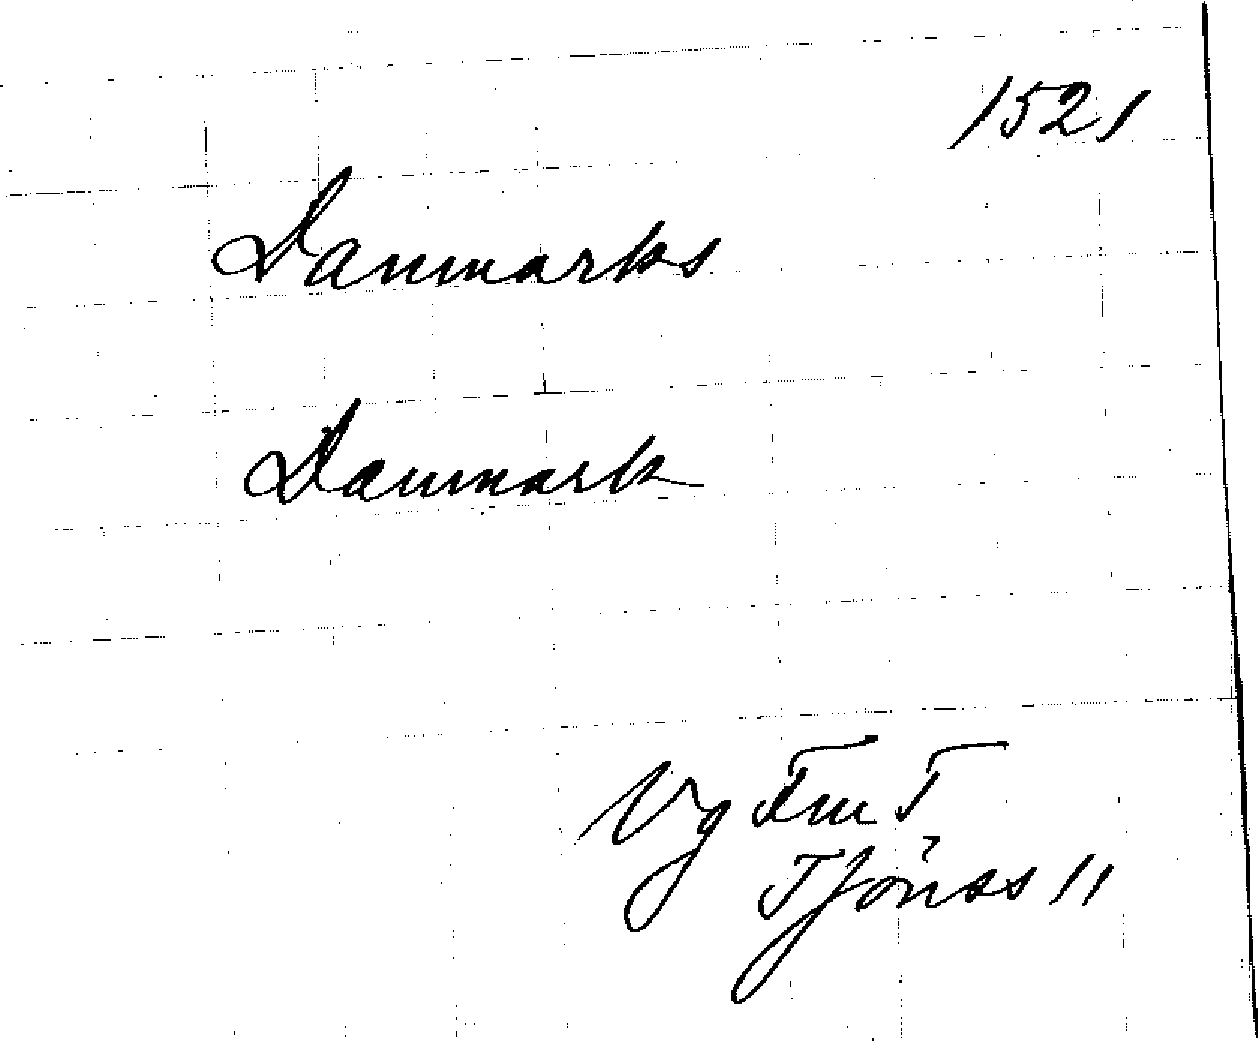 1521
Danmarks
Danmark
Vg Fru T
Tjönss 11